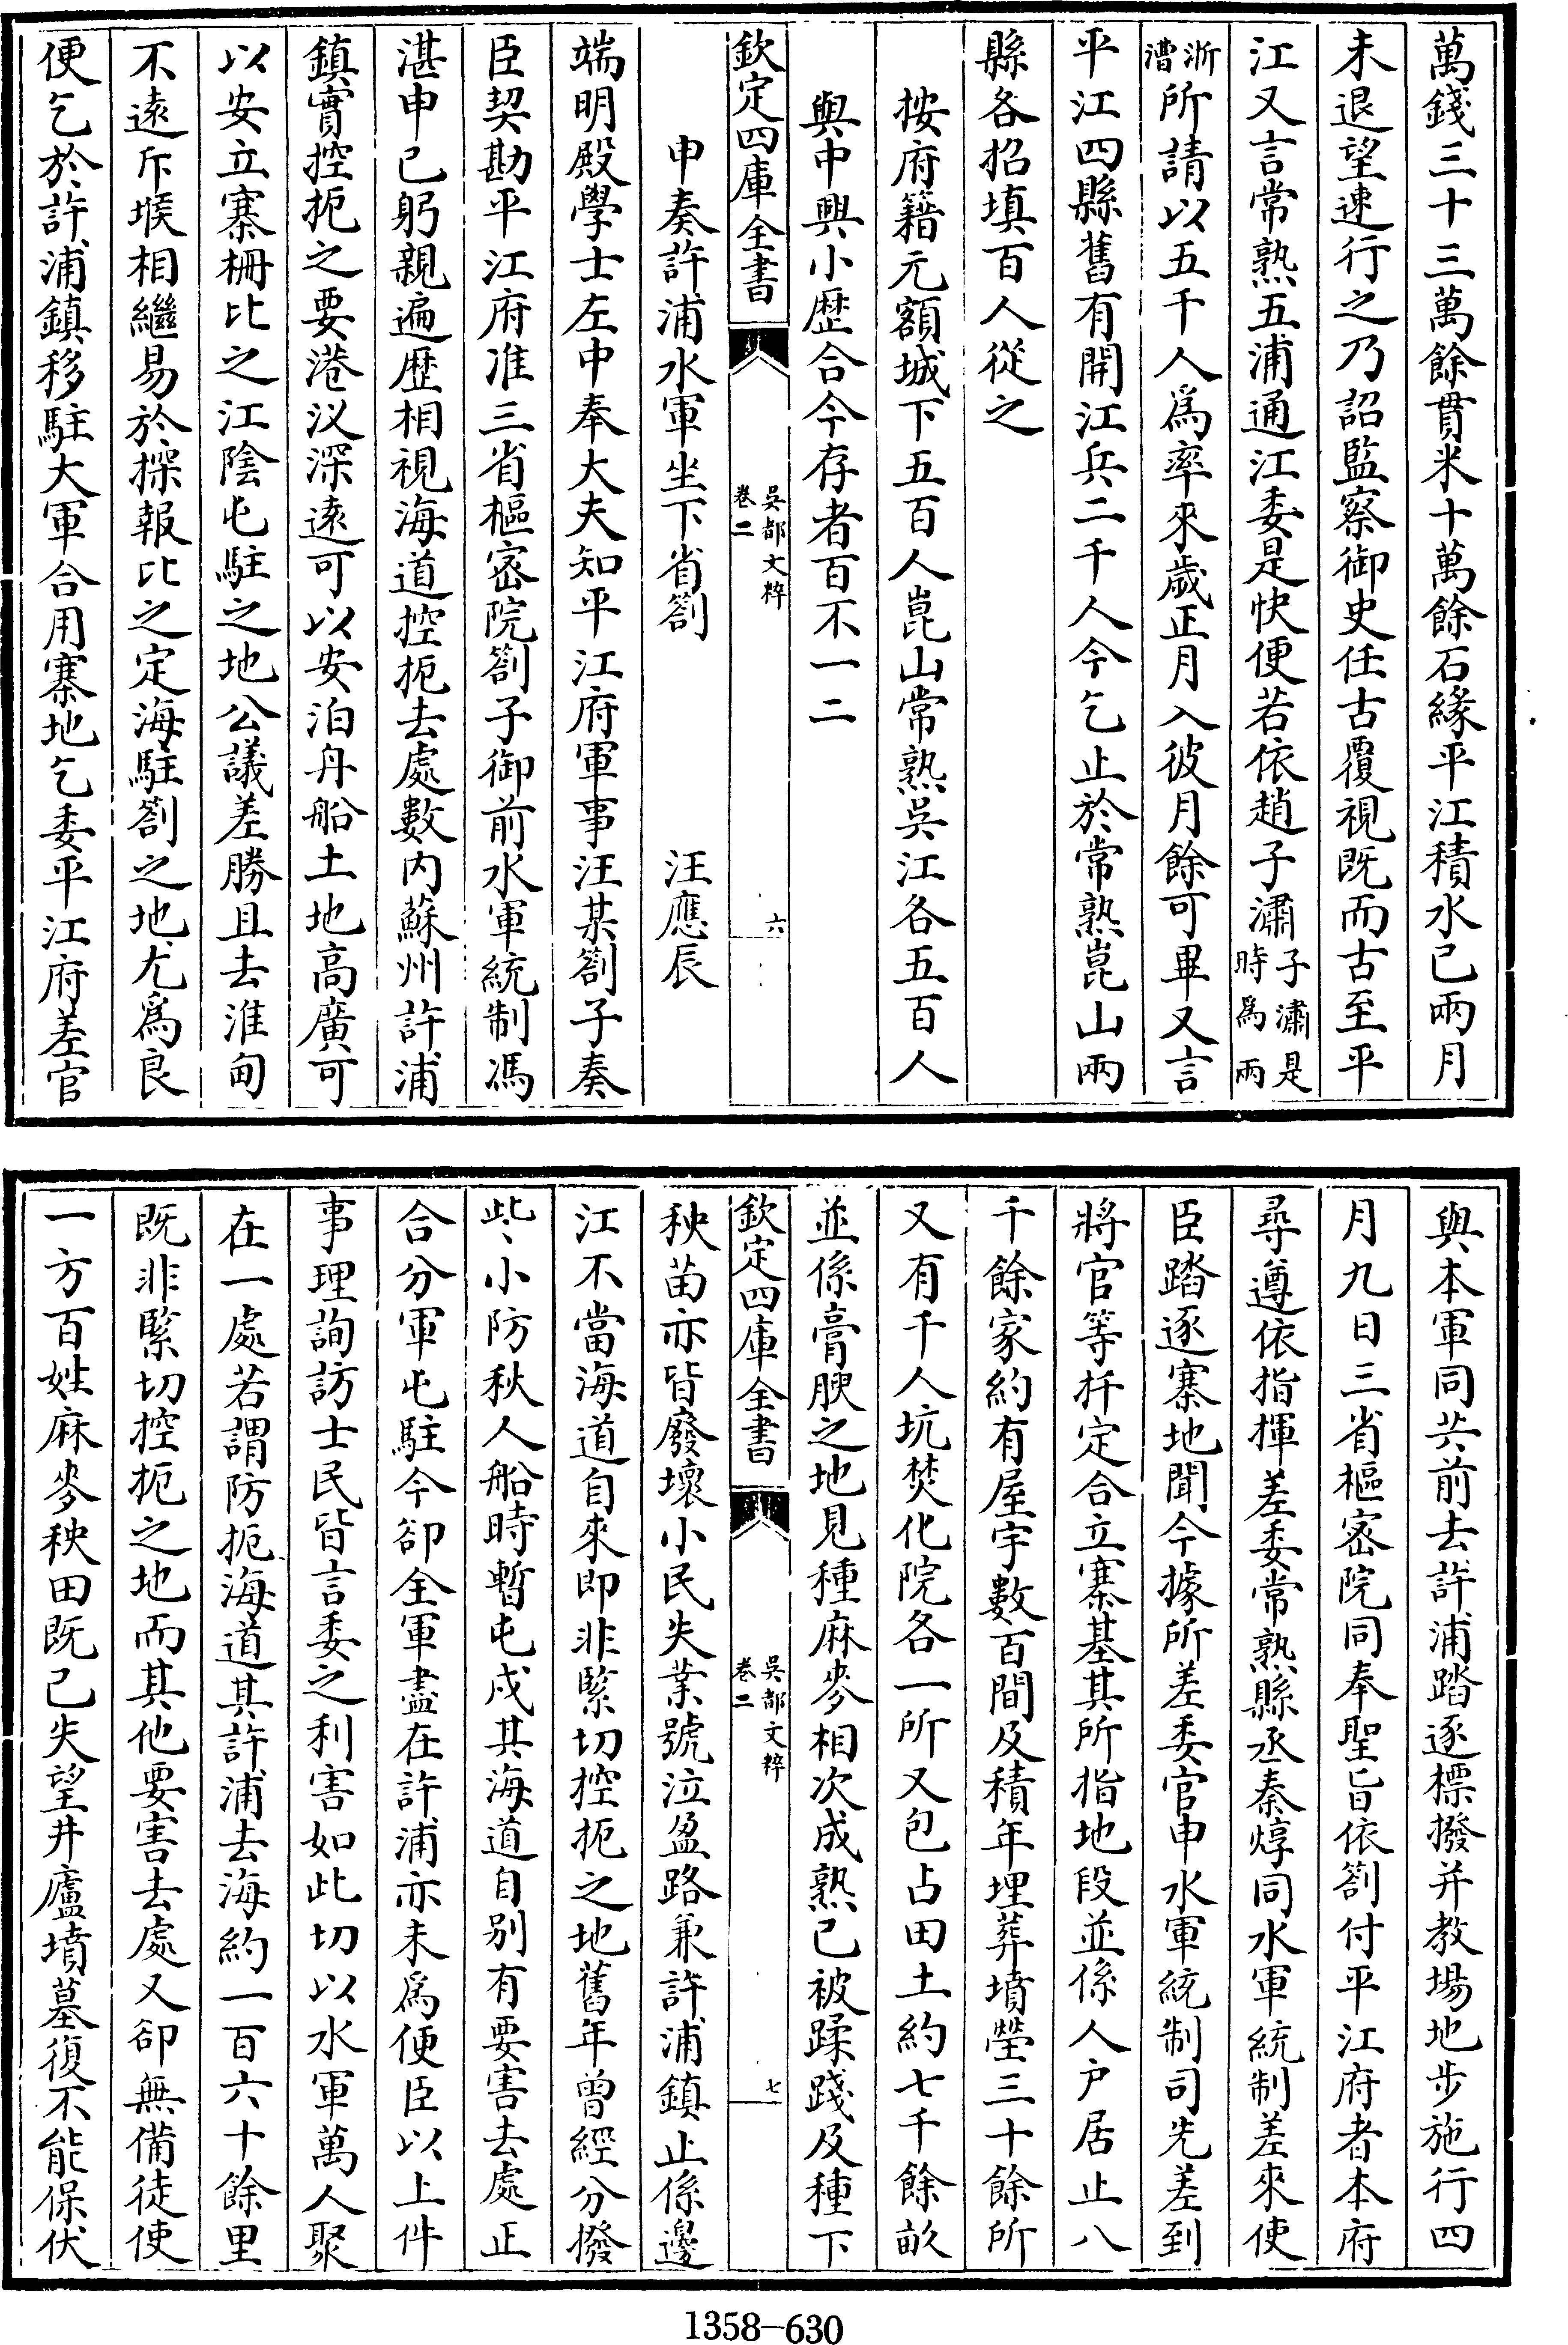 萬錢三十三萬餘貫米十萬餘石緣平江積水已兩月
未退望速行之乃詔監察御史任古覆視既而古至平
江又言常熟五浦通江委是快便若依趙子潚子潚是時爲兩
浙漕所請以五千人爲率來歲正月入彼月餘可畢又言
平江四縣舊有開江兵二千人今乞止於常熟崑山兩
縣各招填百人從之
按府籍元額城下五百人崑山常熟吳江各五百人
與中興小歷合今存者百不一二
欽定四庫全書
吳都文粹
卷二
六
申奏許浦水軍坐下省劄
汪應辰
端明殿學士左中奉大夫知平江府軍事汪某劄子奏
臣契勘平江府准三省樞密院劄子御前水軍統制馮
湛申已躬親遍歷相視海道控扼去處數内蘇州許浦
鎮實控扼之要港汊深遠可以安泊舟船土地高廣可
以安立寨柵比之江陰屯駐之地公議差勝且去淮甸
不遠斥堠相繼易於探報比之定海駐劄之地尤爲良
便乞於許浦鎮移駐大軍合用寨地乞委平江府差官
與本軍同共前去許浦踏逐標撥并教場地步施行四
月九日三省樞密院同奉聖旨依劄付平江府者本府
尋遵依指揮差委常熟縣丞秦焞同水軍統制差來使
臣踏逐寨地聞今據所差委官申水軍統制司先差到
將官等扦定合立寨基其所指地段並係人户居止八
千餘家約有屋宇數百間及積年埋葬墳塋三十餘所
又有千人坑焚化院各一所又包占田土約七千餘畝
並係膏腴之地見種麻麥相次成熟已被蹂踐及種下
欽定四庫全書
吳都文粹
卷二
七
秧苗亦皆廢壞小民失業號泣盈路兼許浦鎮止係邊
江不當海道自來即非緊切控扼之地舊年曾經分撥
些小防秋人船時暫屯戍其海道自别有要害去處正
合分軍屯駐今卻全軍盡在許浦亦未爲便臣以上件
事理詢訪士民皆言委之利害如此切以水軍萬人聚
在一處若謂防扼海道其許浦去海約一百六十餘里
既非緊切控扼之地而其他要害去處又卻無備徒使
一方百姓麻麥秧田既已失望井廬墳墓復不能保伏
1358-630